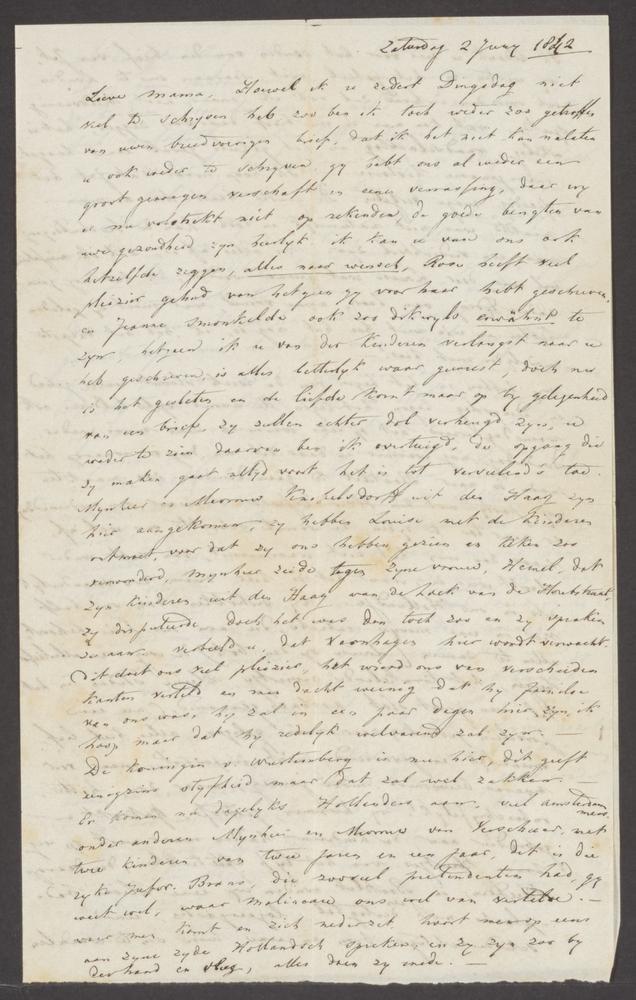 Zaturdag 2 Juny 1842
Lieve mama, Hoewel ik u zedert Dingsdag niet
veel te schryven heb zoo ben ik toch weder zoo getroffen
van uwen breedvoerigen brief, dat ik het niet kan nalaten
u ook weder te schryven gy hebt ons al weder een
groot genoegen verschaft en eene verrassing, daar wy
er nu volstrekt niet op rekenden, de goede berigten van
uwe gezondheid zyn heerlyk ik kan u van ons ook
hetzelfde zeggen, alles naar wensch, Rose heeft veel
pleizier gehad van hetgeen gy voor haar hebt geschreven,
en Jeanne smonkelde ook zoo dikwyls erwähnt te
zyn, hetgeen ik u van der Kinderen verlangst naar u
heb geschreven, is alles letterlyk waar geweest, doch nu
is het gesleten en de liefde komt maar op by gelegenheid
van een brief, zy zullen echter dol verheugd zyn, u
weder te zien daarvan ben ik overtuigd, de opgang die
zy maken gaat altyd voort, het is tot vervelend's toe.
Mynheer en Mevrouw uit den Haag zyn
hier aangekomen, zy hebben Louise met de Kinderen
ontmoet voor dat zy ons hebben gezien en keken zoo
verwonderd, mynheer zeide tegen zyne vrouw, Hemel, dat
zyn kinderen uit den Haag van de hoek van de Houtstraat,
zy disputeerde, doch het was dan toch zoo en zy spraken
ze aan. verbeeld u, dat hier wordt verwacht.
dit doet ons veel pleizier, het wierd ons van verscheiden
kanten verteld en men dacht weinig dat hy familie
van ons was, hy zal in een paar dagen hier zyn, ik
hoop maar dat hy redelyk welvarend zal zyn. —
De Koningin v. Wurtemberg is nu hier, dit geeft
eenigzins styfheid maar dat zal wel zakken. —
Er komen nu dagelyks Hollanders aan, veel amsterdam
mers.
onder anderen Mynheer en Mevrouw van Verschuer, met
twee kinderen van twee jaren en een jaar, dit is die
ryke Jufvr. Brans, die zooveel pretendenten had, gy
weet wel, waar ons wel van vertelde. —
waar men komt en zich nederzet hoort men op eens
aan zyne zyde Hollandsch spreken, en zy zyn zoo by
der hand en vlug, alles doen zy mede. —